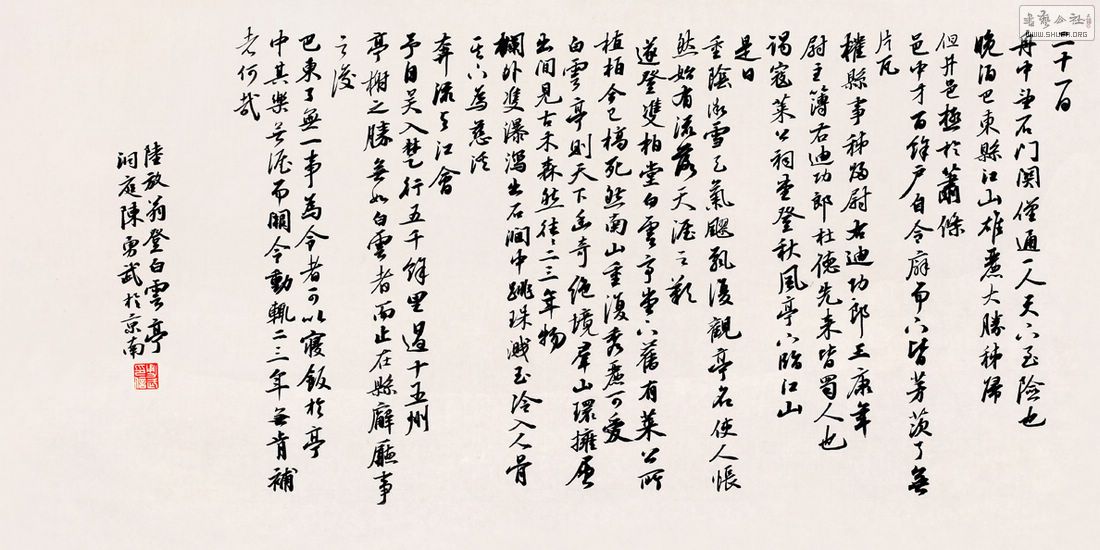 二十一日
舟中望石门関僅通一人天下至險也
晚泊巴東縣江山雄麗大勝秭歸
但井邑極於蕭條
邑中才百餘户自令廨而下皆茅茨了無
片瓦
權縣事秭歸尉右迪功郎王康年
尉主簿右迪功郎杜德先来皆蜀人也
謁寇莱公祠堂登秋風亭下臨江山
是日
重陰微雪天氣飂飘復觀亭名使人悵
然始有流落天涯之歎
遂登雙柏堂白雲亭堂下舊有莱公所
植柏今已槁死然南山重復秀麗可愛
白雲亭則天下幽奇绝境羣山環擁層
出間見古木森然往往二三年物
欄外雙瀑瀉出石澗中跳珠濺玉冷入人骨
其下為慈溪
奔流与江會
予自吴入楚行五千餘里過十五州
亭榭之勝無如白雲者而止在縣廨廳事
之後
巴東了無一事為令者可以寝飯於亭
中其樂無涯而闕令動輒二三年無肯補
者何哉
陸放翁登白雲亭
洞庭陳勇武於京南
书艺公社
WWW.SHUFA.ORG